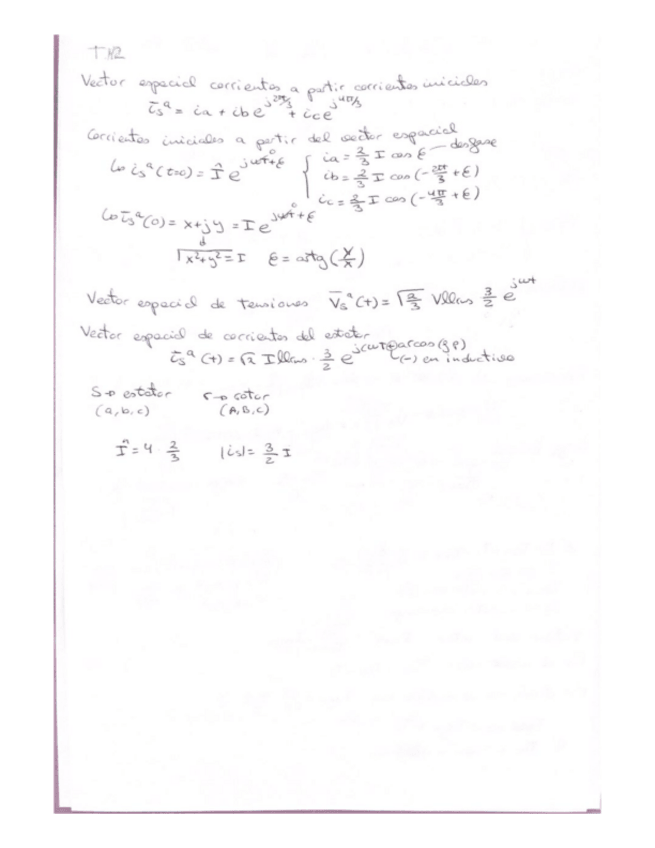 TM2
Vector espacial corrientes a partir corrientes iniciales
i̅sᵃ = ia + ib e^(j2π/3) + ic e^(j4π/3)
Corrientes iniciales a partir del vector espacial
↳ isᵃ(t=0) = Î e^(jωt+ε) { ia = 2/3 I cos ε — desfase
ib = 2/3 I cos (-2π/3 + ε)
ic = 2/3 I cos (-4π/3 + ε)
↳ i̅sᵃ(0) = x+jy = I e^(jωt+ε)
√(x²+y²) = I ε = artg (y/x)
Vector espacial de tensiones V̅sᵃ(t) = √(2/3) Vllrms 3/2 e^(jωt)
Vector espacial de corrientes del estator
i̅sᵃ(t) = √2 Illrms · 3/2 e^(j(ωt⊖arcos(fp)) (-) en inductivo
S→ estator r→ rotor
(a,b,c) (A,B,C)
Î = 4 · 2/3 |is| = 3/2 I